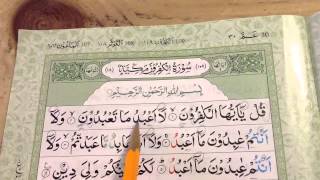 سُوْرَةُ الْكٰفِرُوْنَ مَكِّيَّةٌ
بِسْمِ اللهِ الرَّحْمٰنِ الرَّحِيْمِ
قُلْ يٰٓاَيُّهَا الْكٰفِرُوْنَ لَآ اَعْبُدُ مَا تَعْبُدُوْنَ وَلَآ
اَنْتُمْ عٰبِدُوْنَ مَآ اَعْبُدُ وَلَآ اَنَا عَابِدٌ مَّا عَبَدْتُّمْ وَلَآ
اَنْتُمْ عٰبِدُوْنَ مَآ اَعْبُدُ لَكُمْ دِيْنُكُمْ وَلِيَ دِيْنِ